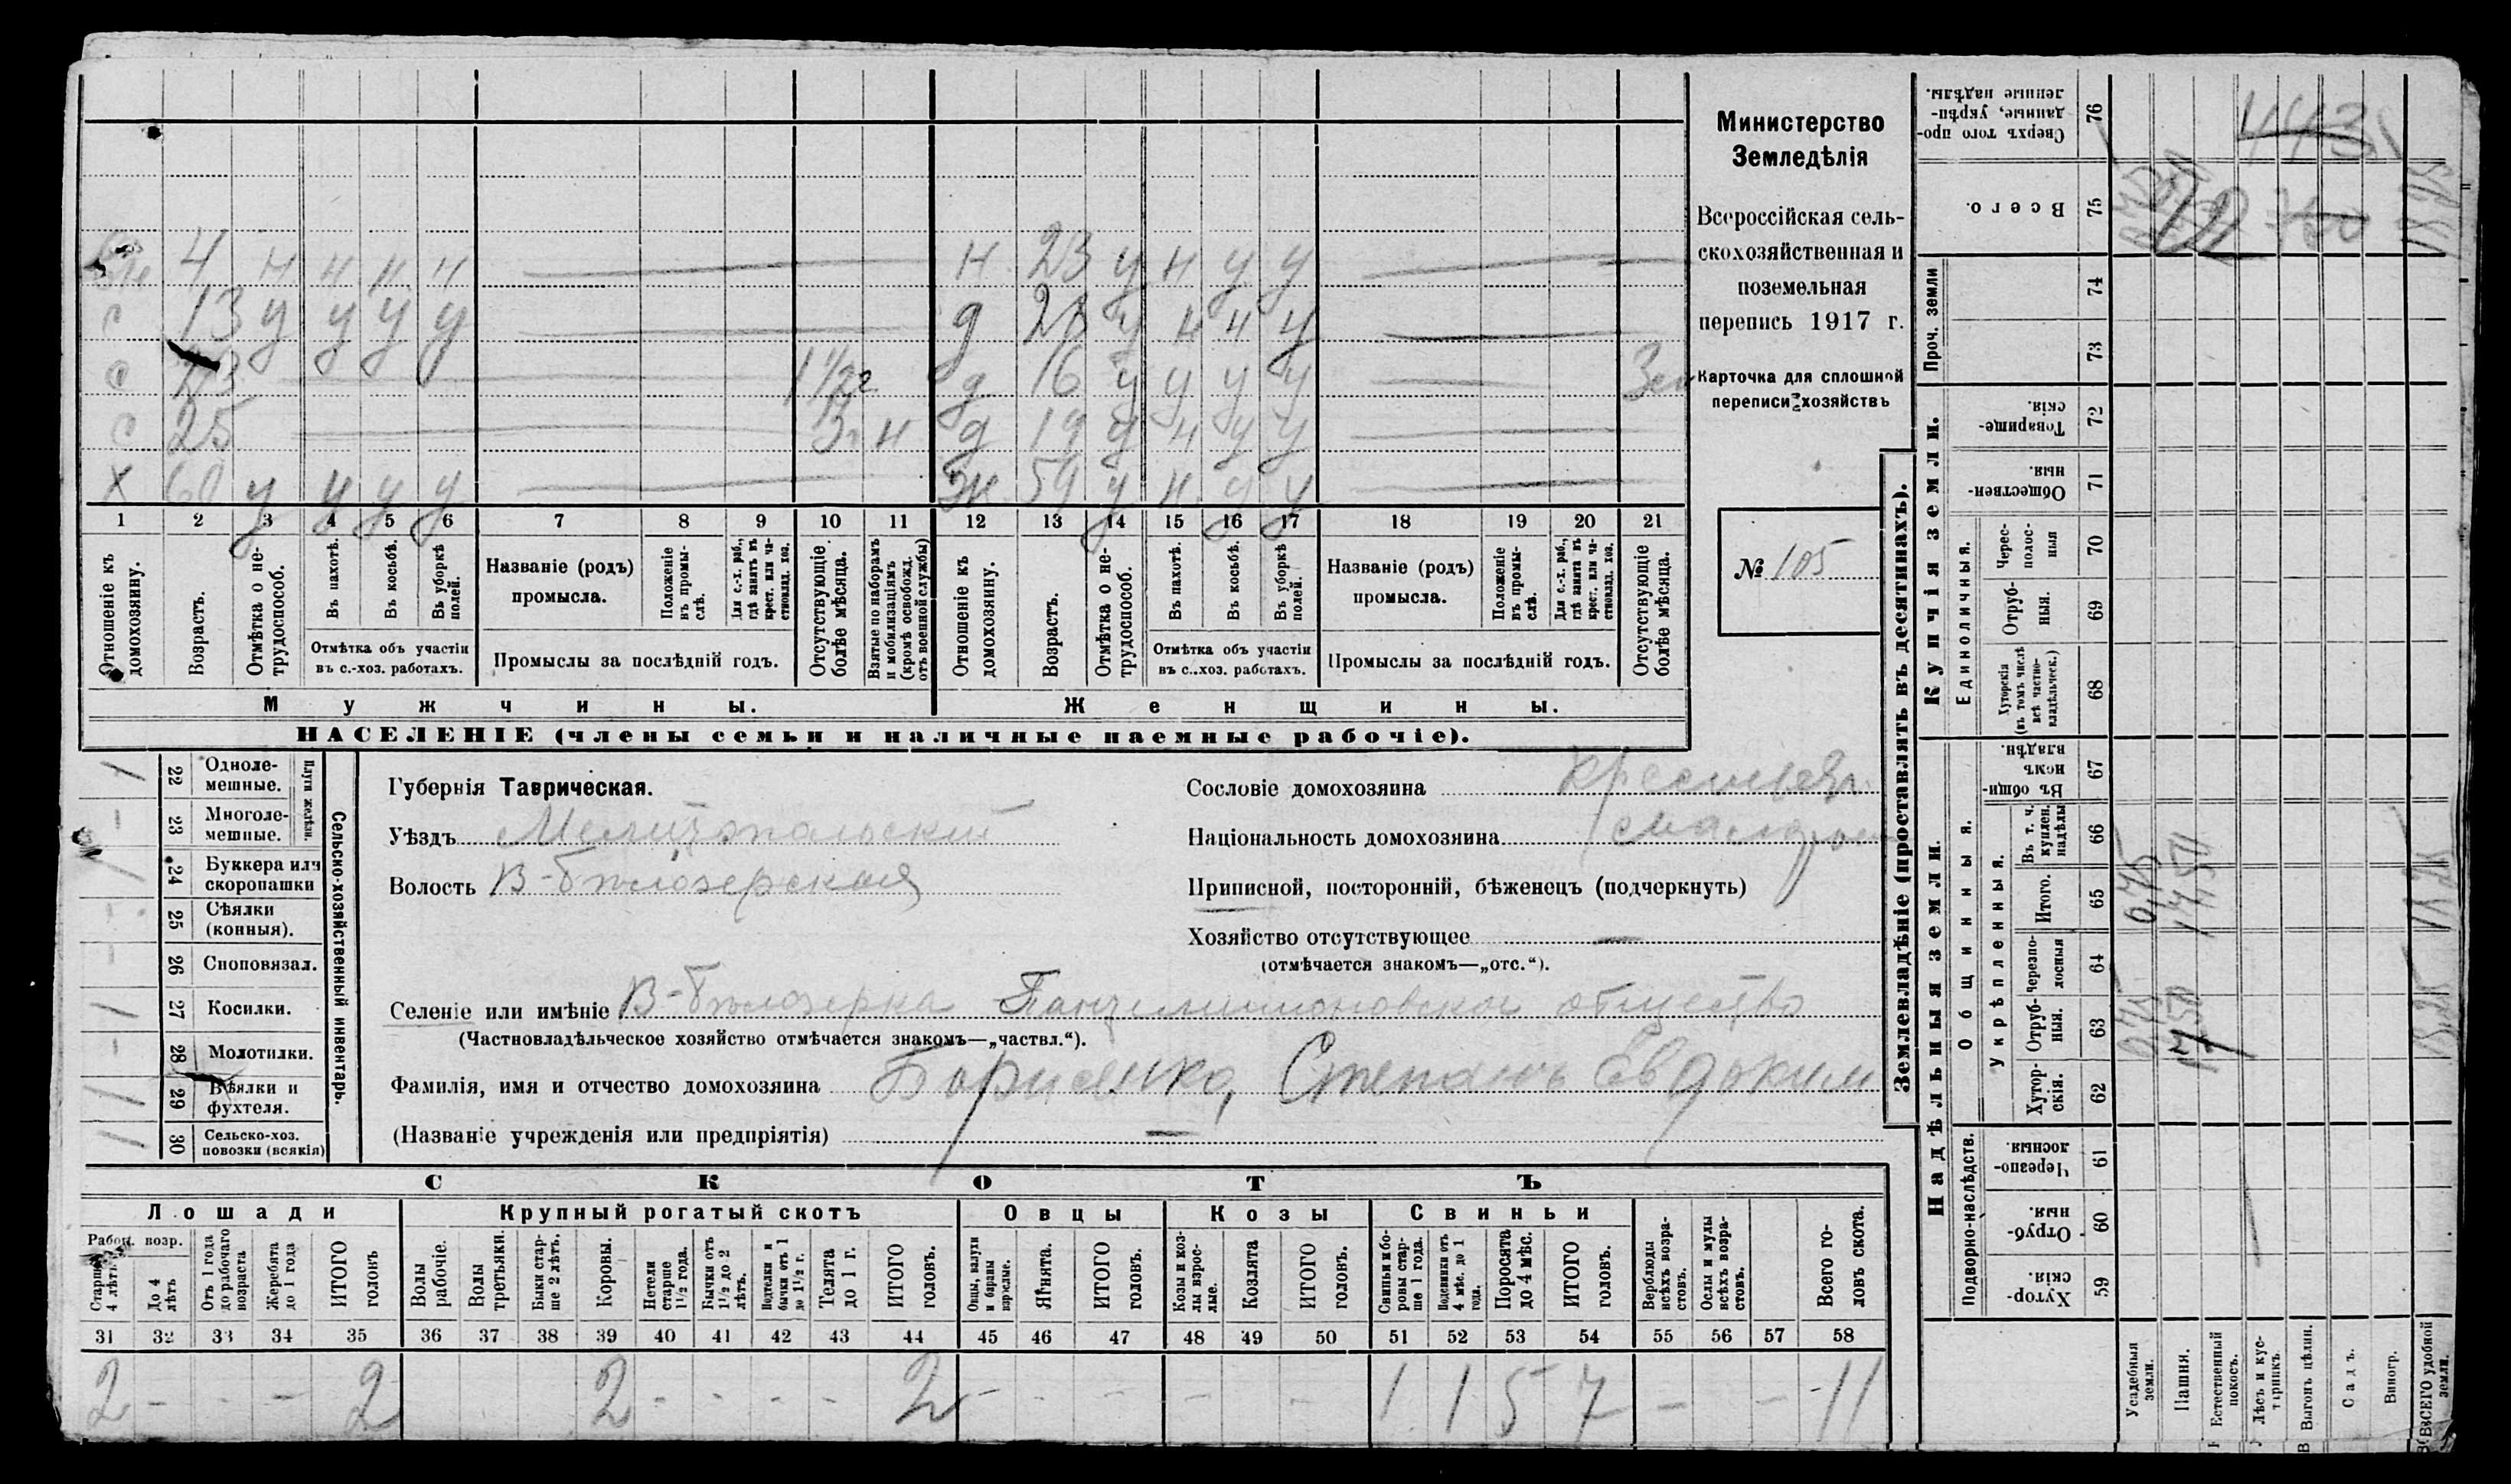 Министерство
Земледѣлія
Всероссійская сель-
скохозяйственная и
поземельная
перепись 1917 г.
Карточка для сплошной
переписи хозяйствъ
№ 105
4 н н н н — н 23 у н у у — —
с 13 у у у у — д 20 у н н у —
с — 1 1/2 г д 16 у у у у —
с 25 — 3 г н д 19 у н у у —
х 60 у у у у — ж 59 у н у у —
1 2 3 4 5 6 7 8 9 10 11 12 13 14 15 16 17 18 19 20 21
Отношеніе къ домохозяину.
Возрастъ.
Отмѣтка о не-трудоспособ.
Въ пахотѣ.
Въ косьбѣ.
Въ уборкѣ полей.
Отмѣтка объ участіи въ с.-хоз. работахъ.
Названіе (родъ) промысла.
Положеніе въ промы-слѣ.
Для с.-х. раб., гдѣ занятъ въ крест. или ча-стновлад. хоз.
Промыслы за послѣдній годъ.
Отсутствующіе болѣе мѣсяца.
Взятые по наборамъ и мобилизаціямъ (кромѣ освобожд. отъ военной службы)
Отношеніе къ домохозяину.
Возрастъ.
Отмѣтка о не-трудоспособ.
Въ пахотѣ.
Въ косьбѣ.
Въ уборкѣ полей.
Отмѣтка объ участіи въ с.-хоз. работахъ.
Названіе (родъ) промысла.
Положеніе въ промы-слѣ.
Для с.-х. раб., гдѣ занята въ крест. или ча-стновлад. хоз.
Промыслы за послѣдній годъ.
Отсутствующіе болѣе мѣсяца.
Мужчины. Женщины.
НАСЕЛЕНІЕ (члены семьи и наличные наемные рабочіе).
Сельско-хозяйственный инвентарь.
Плуги желѣзн.
22 Одноле-мешные. 1
23 Многоле-мешные. -
24 Буккера или скоропашки 1
25 Сѣялки (конныя). -
26 Сноповязал. -
27 Косилки. 1
28 Молотилки. -
29 Вѣялки и фухтеля. 1
30 Сельско-хоз. повозки (всякія) 1
Губернія Таврическая.
Уѣздъ Мелитопольскій
Волость В-Бѣлозерская
Сословіе домохозяина
Національность домохозяина
Приписной, посторонній, бѣженецъ (подчеркнуть)
Хозяйство отсутствующее —
(отмѣчается знакомъ—„отс.“).
Селеніе или имѣніе В-Бѣлозерка Пантелимоновское общество
(Частновладѣльческое хозяйство отмѣчается знакомъ—„частвл.“).
Фамилія, имя и отчество домохозяина Борисенко, Степанъ Евдоким
(Названіе учрежденія или предпріятія) —
СКОТЪ
Лошади Крупный рогатый скотъ Овцы Козы Свиньи
Рабоч. возр.
Старше 4 лѣтъ
До 4 лѣтъ
Отъ 1 года до рабочаго возраста
Жеребята до 1 года
ИТОГО головъ
Волы рабочіе.
Волы третьяки.
Быки стар-ше 2 лѣтъ.
Коровы.
Нетели старше 1 1/2 года.
Бычки отъ 1 1/2 до 2 лѣтъ.
Подтелки и бычки отъ 1 до 1 1/2 г.
Телята до 1 г.
ИТОГО головъ.
Овцы, валухи и бараны взрослые.
Ягнята.
ИТОГО головъ.
Козы и коз-лы взрос-лые.
Козлята
ИТОГО головъ.
Свиньи и бо-ровы стар-ше 1 года.
Подсвинки отъ 4 мѣс. до 1 года.
Поросята до 4 мѣс.
ИТОГО головъ.
Верблюды всѣхъ возра-стовъ.
Ослы и мулы всѣхъ возра-стовъ.
Всего го-ловъ скота.
31 32 33 34 35 36 37 38 39 40 41 42 43 44 45 46 47 48 49 50 51 52 53 54 55 56 57 58
2 - - - 2 2 - - - - 2 - - - - - 1 1 5 7 - - 11
Землевладѣніе (проставлять въ десятинахъ).
Надѣльныя земли.
Купчія земли.
Проч. земли
Подворно-наслѣдств.
Общинныя.
Укрѣпленныя.
Единоличныя.
59 Хутор-скія.
60 Отруб-ныя.
61 Черезпо-лосныя
62 Хутор-скія.
63 Отруб-ныя.
64 Черезпо-лосныя
65 Итого.
66 Въ т. ч. куплен. надѣлы
67 Въ общи-номъ владѣн.
68 Хуторскія (въ томъ числѣ всѣ частно-владѣльческ.)
69 Отруб-ныя.
70 Черес-полос-ныя
71 Обществен-ныя.
72 Товарище-скія.
73
74
75 Всего.
76 Сверхъ того про-данные, укрѣп-ленные надѣлы.
Усадебныя земли.
Пашня.
Естественный покосъ.
Лѣсъ и кус-тарникъ.
Выгонъ цѣлин.
Садъ.
Виногр.
ВСЕГО удобной земли.
443